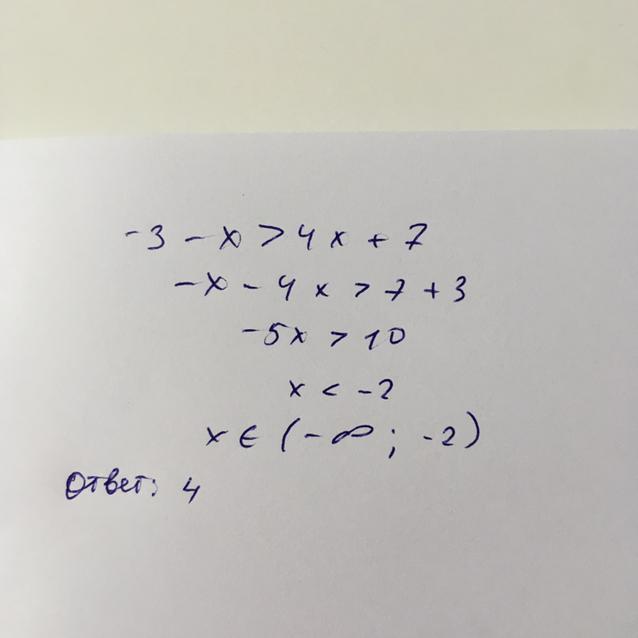 -3 - x > 4x + 7
-x - 4x > 7 + 3
-5x > 10
x < -2
x ∈ (-∞; -2)
Ответ: 4